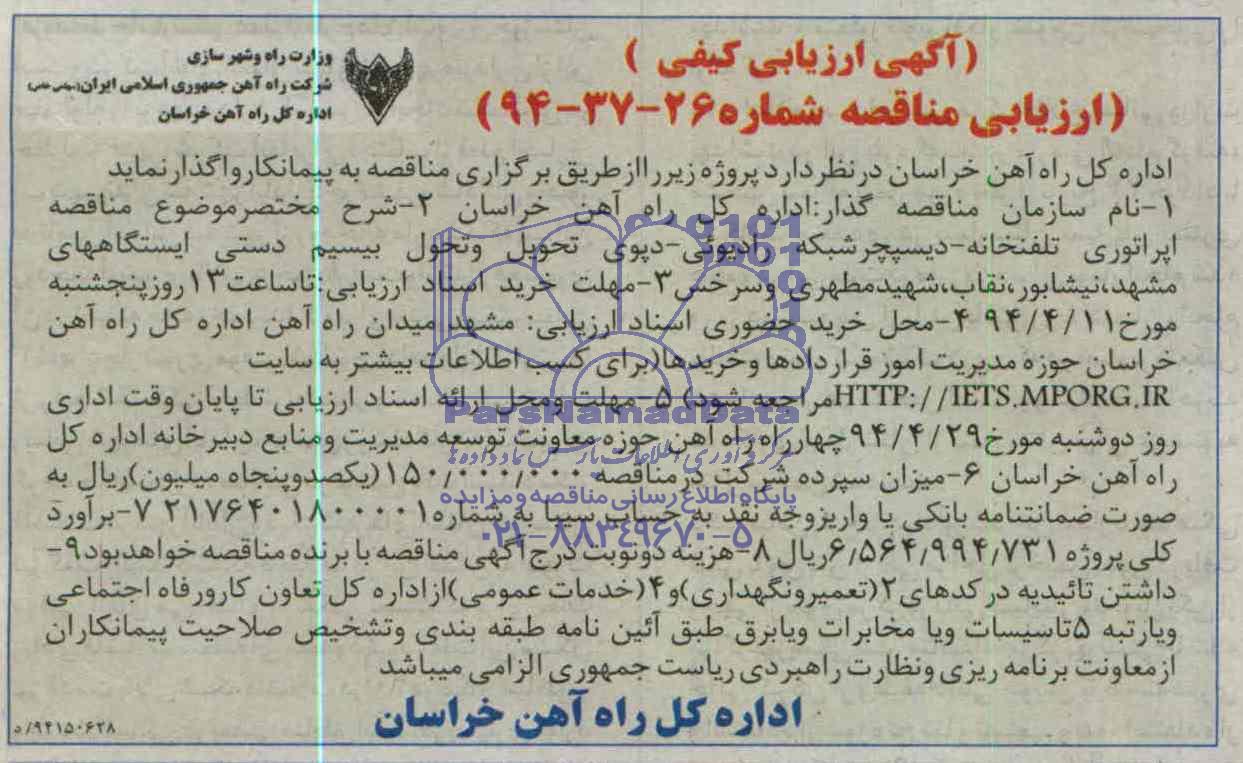 (آگهی ارزیابی کیفی )
(ارزیابی مناقصه شماره۲۶-۳۷-۹۴)
وزارت راه وشهر سازی
شرکت راه آهن جمهوری اسلامی ایران(سهامی خاص)
اداره کل راه آهن خراسان
اداره کل راه آهن خراسان درنظردارد پروژه زیررااز طریق برگزاری مناقصه به پیمانکارواگذارنماید
۱-نام سازمان مناقصه گذار:اداره کل راه آهن خراسان ۲-شرح مختصرموضوع مناقصه
اپراتوری تلفنخانه-دیسپچرشبکه رادیوئی-دپوی تحویل وتحول بیسیم دستی ایستگاههای
مشهد،نیشابور،نقاب،شهیدمطهری وسرخس۳-مهلت خرید اسناد ارزیابی:تاساعت۱۳روزپنجشنبه
مورخ۹۴/۴/۱۱ ۴-محل خرید حضوری اسناد ارزیابی: مشهد میدان راه آهن اداره کل راه آهن
خراسان حوزه مدیریت امور قراردادها وخریدها(برای کسب اطلاعات بیشتر به سایت
HTTP://IETS.MPORG.IRمراجعه شود) ۵-مهلت ومحل ارائه اسناد ارزیابی تا پایان وقت اداری
روز دوشنبه مورخ۹۴/۴/۲۹چهارراه راه آهن حوزه معاونت توسعه مدیریت ومنابع دبیرخانه اداره کل
راه آهن خراسان ۶-میزان سپرده شرکت درمناقصه ۱۵۰/۰۰۰/۰۰۰(یکصدوپنجاه میلیون)ریال به
صورت ضمانتنامه بانکی یا واریزوجه نقد به حساب سیبا به شماره۲۱۷۶۴۰۱۸۰۰۰۰۱ ۷-برآورد
کلی پروژه ۶/۵۶۴/۹۹۴/۷۳۱ریال ۸-هزینه دونوبت درج آگهی مناقصه با برنده مناقصه خواهدبود۹-
داشتن تائیدیه در کدهای۲(تعمیرونگهداری)و۴(خدمات عمومی)ازاداره کل تعاون کارورفاه اجتماعی
ویارتبه ۵تاسیسات ویا مخابرات ویابرق طبق آئین نامه طبقه بندی وتشخیص صلاحیت پیمانکاران
ازمعاونت برنامه ریزی ونظارت راهبردی ریاست جمهوری الزامی میباشد
اداره کل راه آهن خراسان
۹۴۱۵۰۶۲۸/د
ParsNamadData
مرکز فرآوری اطلاعات پارس نماد داده ها
پایگاه اطلاع رسانی مناقصه ومزایده
۰۲۱-۸۸۳۴۹۶۷۰-۵